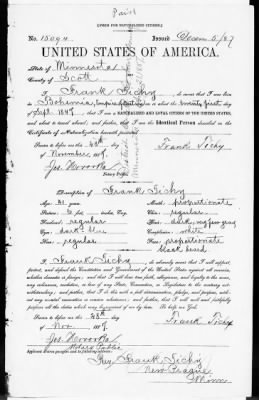 Paid
(FORM FOR NATURALIZED CITIZEN.)
No. 15094 Issued Decem 5/87
UNITED STATES OF AMERICA.
State of Minnesota
County of Scott
I, Frank Tichy, do swear that I was born
in Bohemia, on or about the
Sept 1845; that I am a NATURALIZED AND LOYAL CITIZEN OF THE UNITED STATES,
and about to travel abroad; and further, that I am the Identical Person described in the
Certificate of Naturalization herewith presented.
Sworn to before me this 23rd Frank Tichy
of November 1887.
Jos. Hovorka
Notary Public
Description of Frank Tichy
Age: years Mouth: proportionate
Stature: feet, inches, Eng. Chin: regular
Forehead: regular Hair: dark,
Eyes: dark blue Complexion: white
Nose: regular Face: proportionate
black beard
I, Frank Tichy, do solemnly swear that I will support,
protect, and defend the Constitution and Government of the United States against all enemies,
whether domestic or foreign; and that I will bear true faith, allegiance, and loyalty to the same,
any ordinance, resolution, or law of any State, Convention, or Legislature to the contrary not-
withstanding; and further, that I do this with a full determination, pledge, and purpose, with-
out any mental reservation or evasion whatsoever; and further, that I will well and faithfully
perform all the duties which may be required of me by law. So help me God.
Sworn to before me this 23rd Frank Tichy
of Nov. 1887.
Jos. Hovorka
Notary Public
Applicant desires passport sent to following address:
Frank Tichy
New Prague
Minn